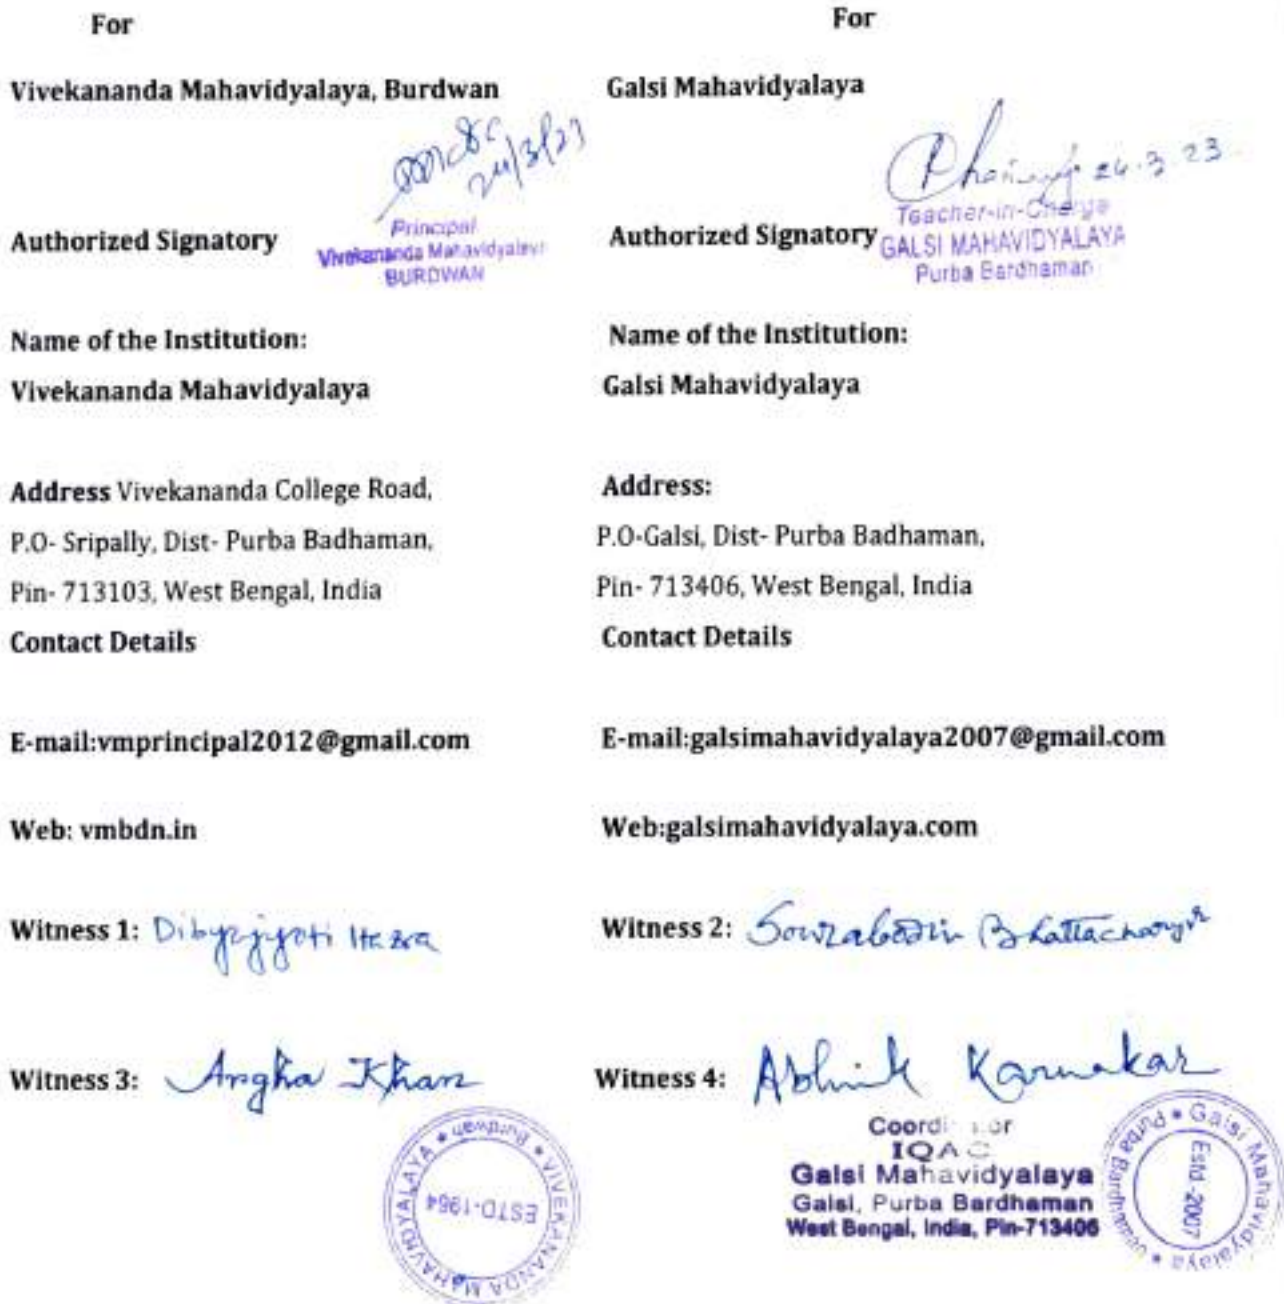 For
Vivekananda Mahavidyalaya, Burdwan
24/3/23
Principal
Vivekananda Mahavidyalaya
BURDWAN
Authorized Signatory
Name of the Institution:
Vivekananda Mahavidyalaya
Address Vivekananda College Road,
P.O- Sripally, Dist- Purba Badhaman,
Pin- 713103, West Bengal, India
Contact Details
E-mail:vmprincipal2012@gmail.com
Web: vmbdn.in
Witness 1: Dibyajyoti Hazra
Witness 3: Angha Khan
VIVEKANANDA MAHAVIDYALAYA * Burdwan *
ESTD-1964
For
Galsi Mahavidyalaya
24.3.23
Teacher-in-Charge
GALSI MAHAVIDYALAYA
Purba Bardhaman
Authorized Signatory
Name of the Institution:
Galsi Mahavidyalaya
Address:
P.O-Galsi, Dist- Purba Badhaman,
Pin- 713406, West Bengal, India
Contact Details
E-mail:galsimahavidyalaya2007@gmail.com
Web:galsimahavidyalaya.com
Witness 2: Bhattacharyya
Witness 4: Abhik Karmakar
Coordinator
IQAC
Galsi Mahavidyalaya
Galsi, Purba Bardhaman
West Bengal, India, Pin-713406
Galsi Mahavidyalaya * Purba Bardhaman *
Estd.-2007